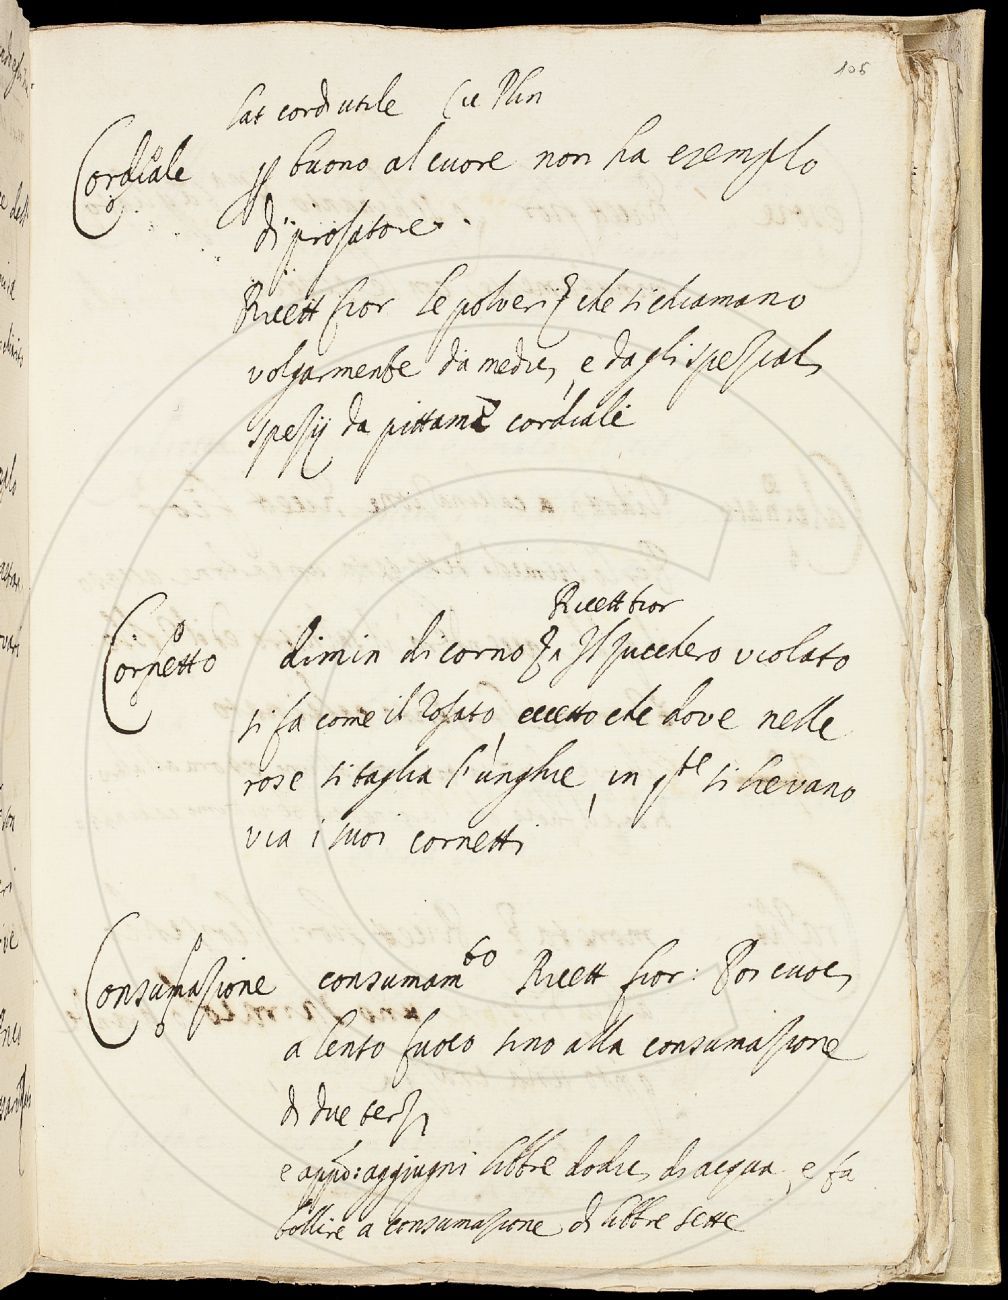 105
lat cordi utile Cic Plin
Cordiale buono al cuore non ha exemplo
di prosatore
Ricett fior le polveri che si chiamano
volgarmente da medici, e dagli speziali
spezij da pittime cordiali
Ricett fior
Cornetto dimin di corno Il zucchero violato
si fa come il rosato, eccetto che dove nelle
rose si taglia l'unghie, in qste si lievano
via i suoi cornetti
Consumazione consumamto Ricett fior: Poi cuoci
a lento fuoco sino alla consumazione
di due terzi
e appo: aggiugni libbre dodici di acqua, e fa
bollire a consumazione di libbre sette